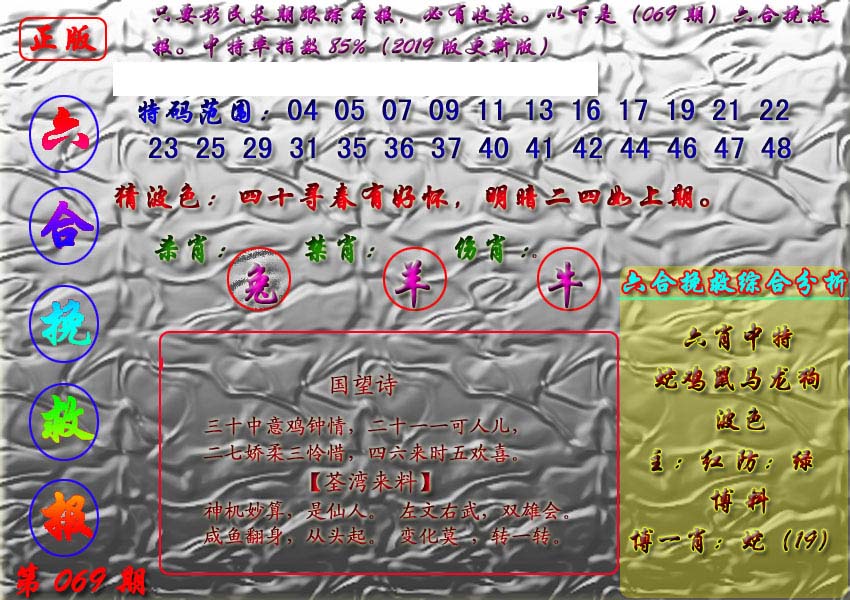 正版
只要彩民长期跟踪本报，必有收获。以下是（069期）六合挽救
报。中特率指数85%（2019版更新版）
六合挽救报
第069期
特码范围：04 05 07 09 11 13 16 17 19 21 22
23 25 29 31 35 36 37 40 41 42 44 46 47 48
猜波色：四十寻春有好怀，明暗二四如上期。
杀肖：兔 禁肖：羊 伤肖：牛
国望诗
三十中意鸡钟情，二十一一可人儿，
二七娇柔三怜惜，四六来时五欢喜。
【荃湾来料】
神机妙算，是仙人。 左文右武，双雄会。
咸鱼翻身，从头起。 变化莫 ，转一转。
六合挽救综合分析
六肖中特
蛇鸡鼠马龙狗
波色
主：红防：绿
博料
博一肖：蛇（19）